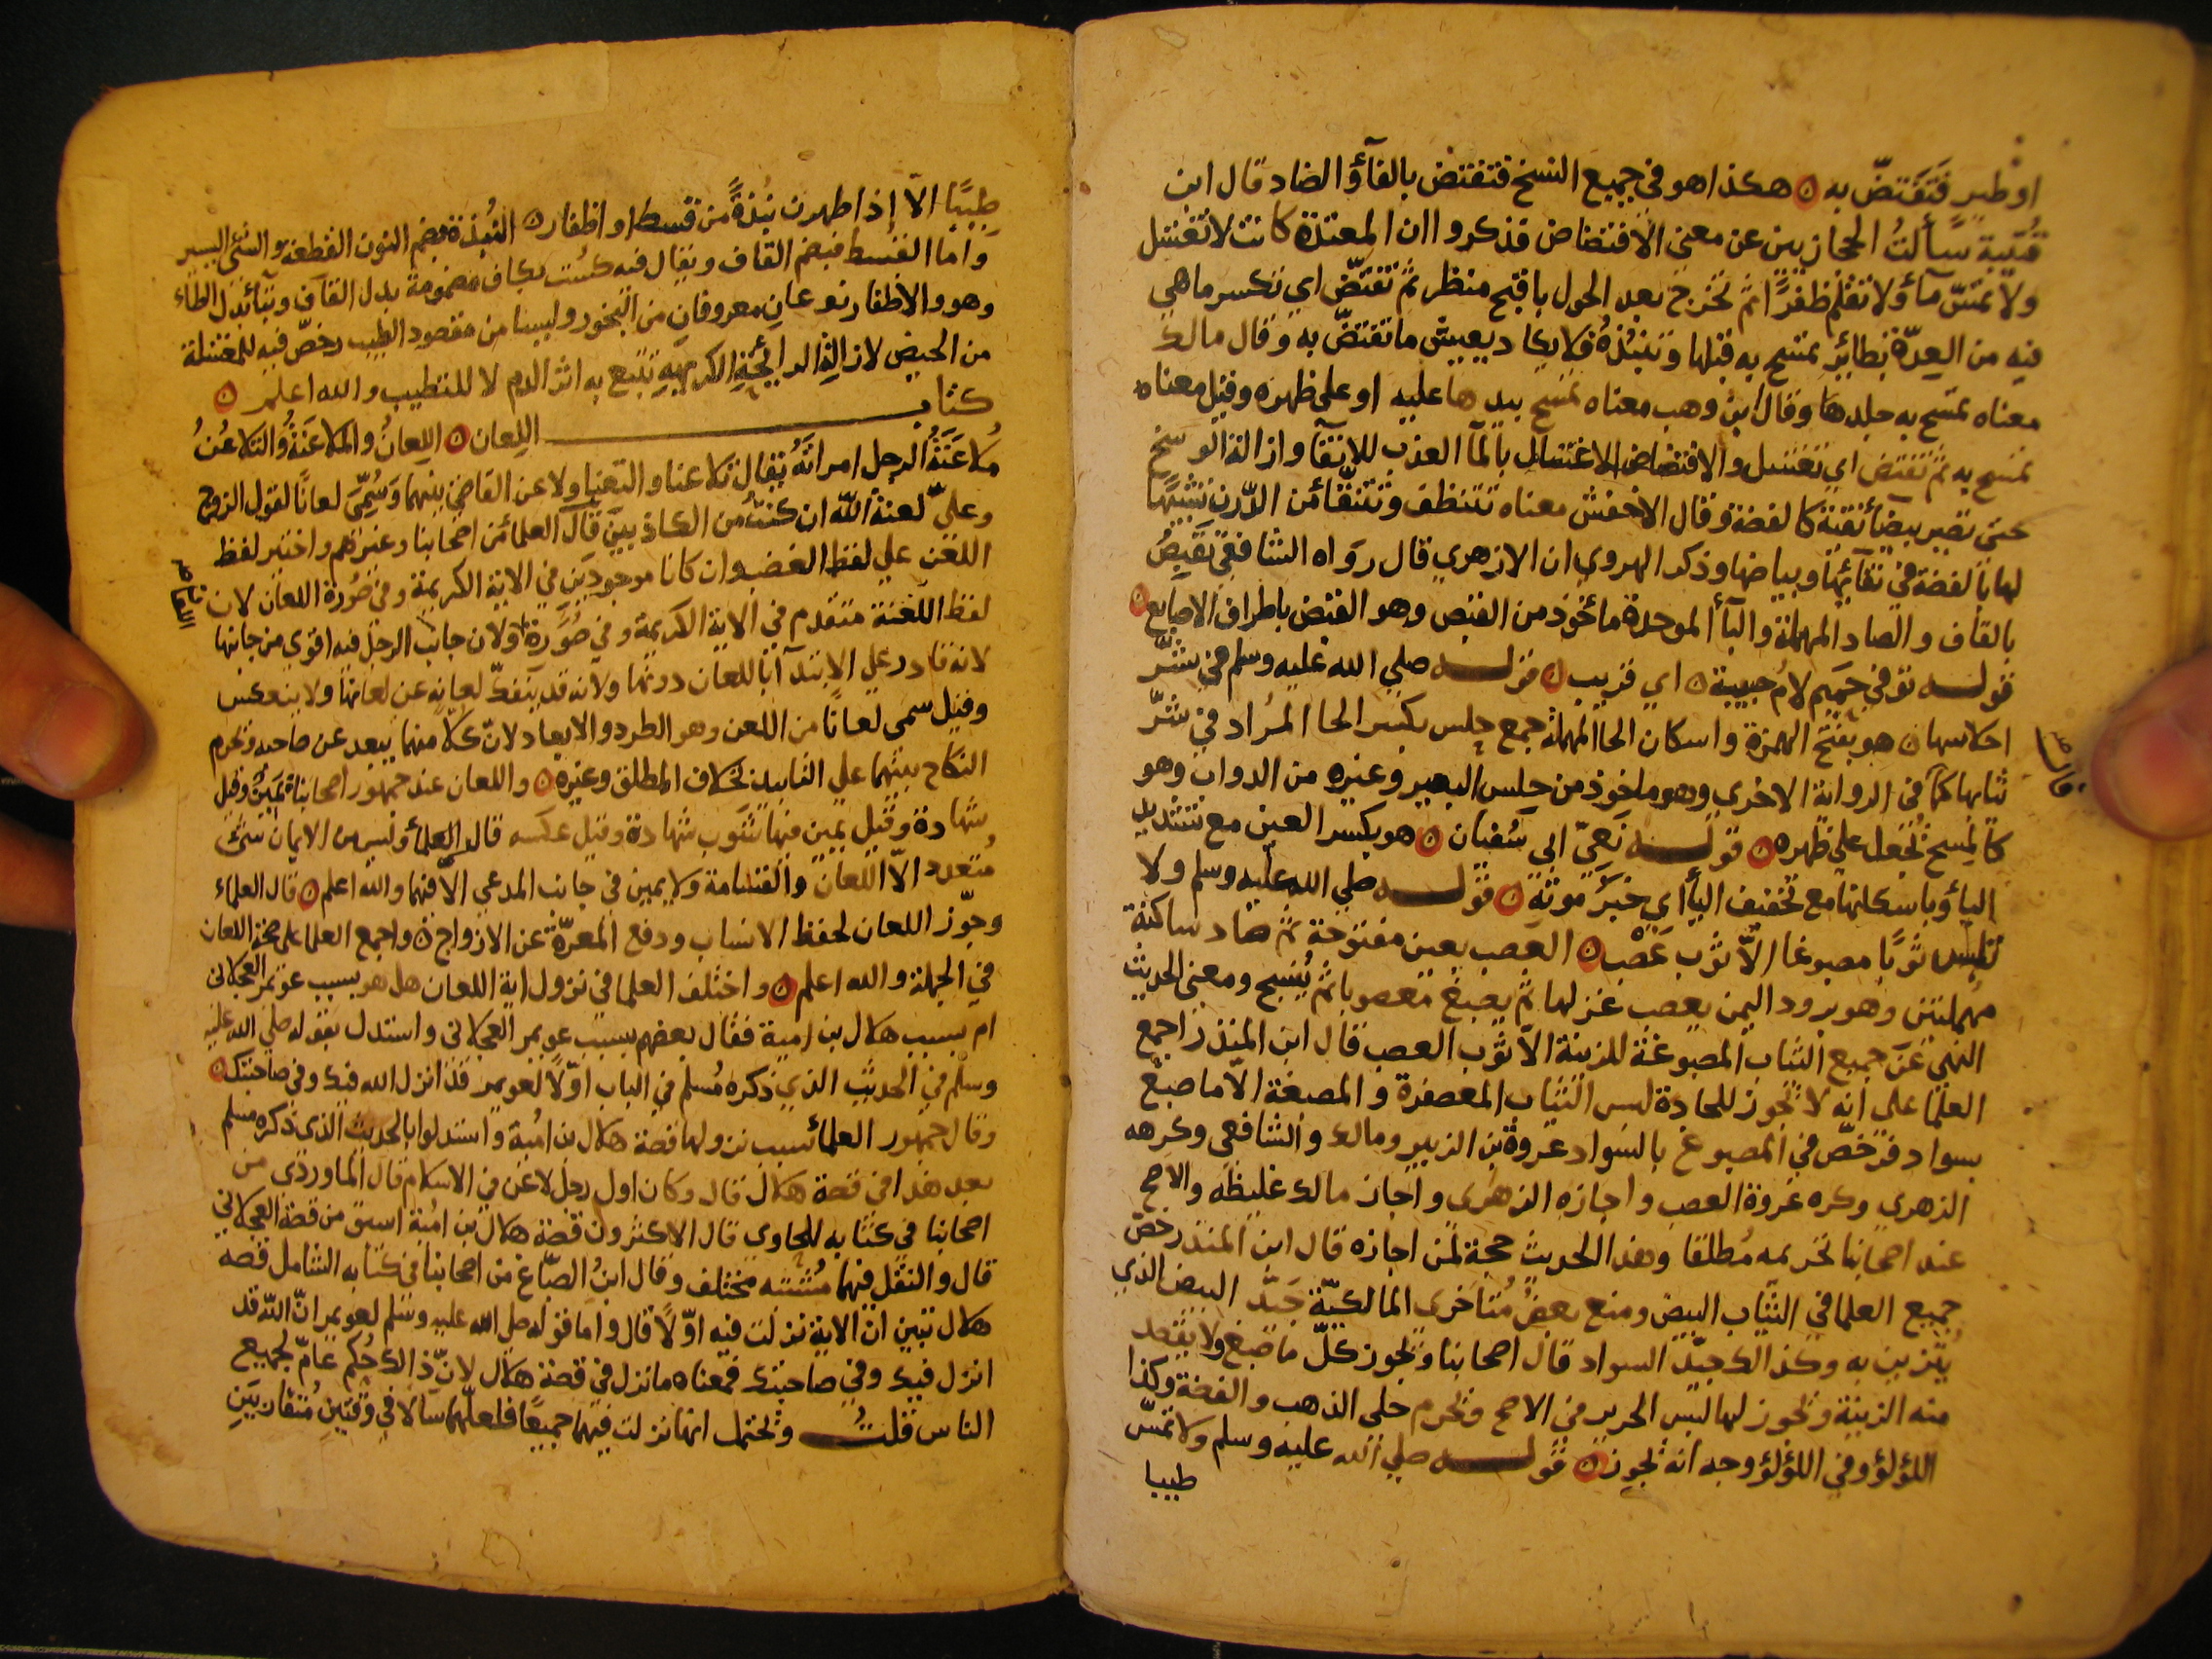 او طير فَتَفتَضّ به ۞ هكذا هو في جميع النسخ فتفتض بالفآء والضاد قال ابن
قُتَيبة سَأَلتُ الحجازيين عن معنى الافتضاض فذكروا ان المعتدّة كانت لا تغتسل
ولا تمسّ مآء ولا تقلم ظفرًا ثم تخرج بعد الحول باقبح منظر ثم تفتضّ اي تكسر ما هي
فيه من العِدّة بطائِرٍ تمسَح به قبلها وَتنبُذهُ فلا يكاد يعيش ما تفتضّ به وقال مالك
معناه تمسَح به جلدها وقال ابنُ وهب معناه تمسَح بيدها عليه او على ظهره وقيل معناه
تمسح به ثم تفتض اي تغتسل والافتضاض الاغتسال بالمآ العذب للانقآ وازالة الوسَخ
حتى تصير بيضآء نقيّة كالفضة وقال الاخفش معناه تتنظف وتتنقّآ من الدّرن تشبيهًا
لها بالفضة في نقآئها وبياضها وذكر الهروي ان الازهري قال رَواه الشافعي تَقبِصُ
بالقاف والصاد المهملة والبآء الموحدة مأخوذ من القبص وهو القبض باطراف الاصابع ۞
قولـه توفي حَميم لامُ حبيبة ۞ اي قريب ۞ قولـه صلي الله عليه وسلم في شَرّ
احلاسها ۞ هو بفتح الهمزة واسكان الحا المهملة جمع حِلس بكسر الحا المُراد في شرّ
ثيابها كمآ في الرواية الاخري وهو ماخوذ من حِلس البعير وغيره من الدواب وهو
كالمِسح يُجعَل على ظهره ۞ قولـه نَعيّ ابي سُفيان ۞ هو بكسر العين مع تشديد
اليآء وباسكانها مع تخفيف اليآء اي خبرُ موته ۞ قولـه صلي الله عليه وسلم ولا
تلبَس ثوبًا مصبوغا الّا ثوب عَصْب ۞ العَصب بعين مفتوحة ثم صاد ساكنة
مهملتين وهو برود اليمن يعصب غزلها ثم يصبغ معصوبا ثم يُنسج ومعنى الحديث
النهي عَن جميع الثياب المصبوغَة للزينة الاّ ثوب العصب قال ابن المنذر اجمع
العلمَا على انه لا يَجوز للحادة لبس الثياب المعصفرة والمصبغة الّا ما صبغ
بسواد فرخصّ في المصبوغ بالسَواد عروة بن الزبير ومالك والشافعي وكرهه
الزهري وكره عُروة العصب واجازه الزهرى واجاز مالك غليظَه والاصح
عند اصحابنا تحريمه مُطلقا وهذا الحديث حجة لمن اجازه قال ابن المنذر رخصّ
جميع العلما في الثياب البيض ومنع بعضُ مُتاخري المالكيّة جَيّد البيض الذي
يُتزين به وكذلك جيّد السواد قال اصحابنا ويَجوز كلّ ما صبغ ولا يقصد
منه الزينة ويَجوز لها لبس الحرير في الاصح ويَحرم حلى الذهب والفضة وكذا
اللؤلؤ وفي اللؤلؤ وجه انه يَجوز ۞ قولـه صلي الله عليه وسلم ولا تمسّ
طيبا
طِيبًا الاّ إذا طهرت نُبذةً من قسط او اظفار ۞ النُبذة بضم النون القطعة والشئ اليسير
وَاما القسط فبضم القاف ويقال فيه كُست بكاف مضمومة بدل القآف وبتآء بَدل الطآء
وهو والاظفار نوعانِ معروفانِ من البخور وليسا من مقصود الطيب رخصّ فيه للمغتسلة
من الحيض لازالةِ الرائحةِ الكريهةِ تتبع به اثر الدم لا للتطيب والله اعلم ۞
كتاب اللِعان ۞ اللِعانُ والملاعَنَةُ والتلاعُنُ
مُلاعَنَةُ الرجل امراتَهُ يقال تلاعنا والتعنا ولاعن القاضي بينهما وَسُمِّيَ لعانًا لقول الزوج
وعليّ لعنة اللّه ان كنتُ من الكاذبين قَآل العلمآء من اصحابنا وغيرهم واختير لفظ
اللعن علي لفظ الغضب وان كانا موجودين في الاية الكريمة وفي صُورة اللعان لان
لفظ اللعنة متقدم في الاية الكريمة وفي صُورة ولان جانب الرجل فيه اقوي من جانبها
لانه قادر علي الابتدآ باللعان دونها ولانه قد ينفكّ لعانه عن لعانها ولا ينعكس
وقيل سمي لعانًا من اللعن وهو الطرد والابعاد لانّ كلا منهما يبعد عن صاحبه ويحرم
النكاح بينهما علي التابيد بخلاف المطلق وغيره ۞ واللعان عند جمهور اصحابنا يَمينٌ وقيل
شهادة وقيل يمين فيها شَوب شهادة وقيل عكسه قال العلمآء وليس من الايمان شئ
مُتعدد الاّ اللعان والقسامة ولا يمين في جانب المدعي الّا فيهما والله اعلم ۞ قال العلماء
وجوّز اللعان لحفظ الانساب ودفع المعرّة عن الازواج ۞ واجمع العلما على صحة اللعان
في الجملة والله اعلم ۞ واختلف العلما في نزول اية اللعان هل هو بسبب عويمر العجلانى
ام بسبب هلال بن امية فقال بعضهم بسبب عويمر العجلانى واستدل بقوله صلي الله عليه
وسلم في الحديث الذي ذكره مُسلم في الباب اوّلا لعويمر قد انزل الله فيك وفي صاحبتك ۞
وقال جمهور العلمآء سبب نزولها قصة هلال بن اميُة واستدلوا بالحديث الذي ذكره مسلم
بعد هذا في قصة هلال قال وكان اول رجل لاعَن في الاسلام قال الماوردى من
اصحابنا في كتابه الحاوى قال الاكثرون قصة هلال بن اميُة اسبق من قصة العجلانى
قال والنقل فيهما مُشتبه مختلف وقال ابنُ الصبّاغ من اصحابنا في كتابه الشامل قصة
هلال تبين ان الاية نزلت فيه اوّلًا قال واما قوله صلي الله عليه وسلم لعويمر انّ اللّه قد
انزل فيك وفي صاحبتك فمعناه ما نزل في قصة هلال لانّ ذالك حُكم عامّ لجميع
الناس قلتُ ويَحتمل انها نزلت فيهما جميعًا فلعلّهما سَالا في وَقتينِ مُتقاربَين